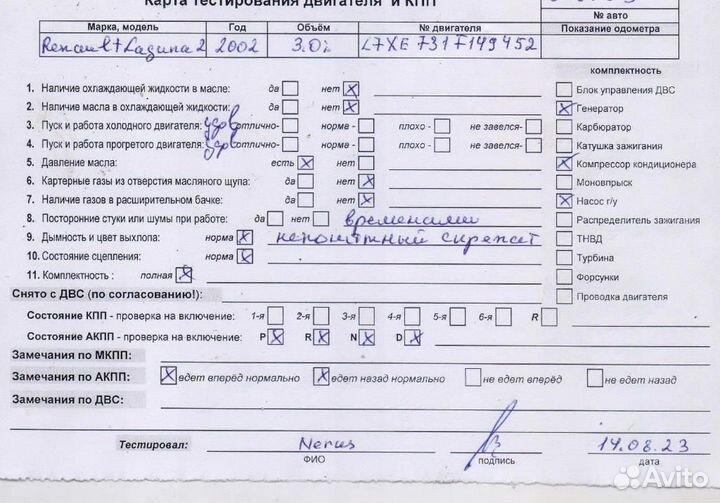 Карта тестирования двигателя и КПП
№ авто
Марка, модель Год Объём № двигателя Показание одометра
Renault Laguna 2 2002 3.0i L7XE 731F149452
комплектность
1. Наличие охлаждающей жидкости в масле: да нет X
Блок управления ДВС
2. Наличие масла в охлаждающей жидкости: да нет X
X Генератор
3. Пуск и работа холодного двигателя: удов отлично- норма - плохо - не завелся-
Карбюратор
4. Пуск и работа прогретого двигателя: удов отлично- норма - плохо - не завелся-
Катушка зажигания
5. Давление масла: есть X нет
X Компрессор кондиционера
6. Картерные газы из отверстия масляного щупа: да нет X
Моновпрыск
7. Наличие газов в расширительном бачке: да нет X
X Насос г/у
8. Посторонние стуки или шумы при работе: да нет временами
Распределитель зажигания
9. Дымность и цвет выхлопа: норма X непонятный скрежет
ТНВД
10. Состояние сцепления: норма X
Турбина
11. Комплектность : полная X
Форсунки
Снято с ДВС (по согласованию!):
Проводка двигателя
Состояние КПП - проверка на включение: 1-я 2-я 3-я 4-я 5-я 6-я R
Состояние АКПП - проверка на включение: P X R X N X D X
Замечания по МКПП:
Замечания по АКПП: X едет вперёд нормально X едет назад нормально не едет вперёд не едет назад
Замечания по ДВС:
Тестировал: 14.08.23
ФИО подпись дата
Avito